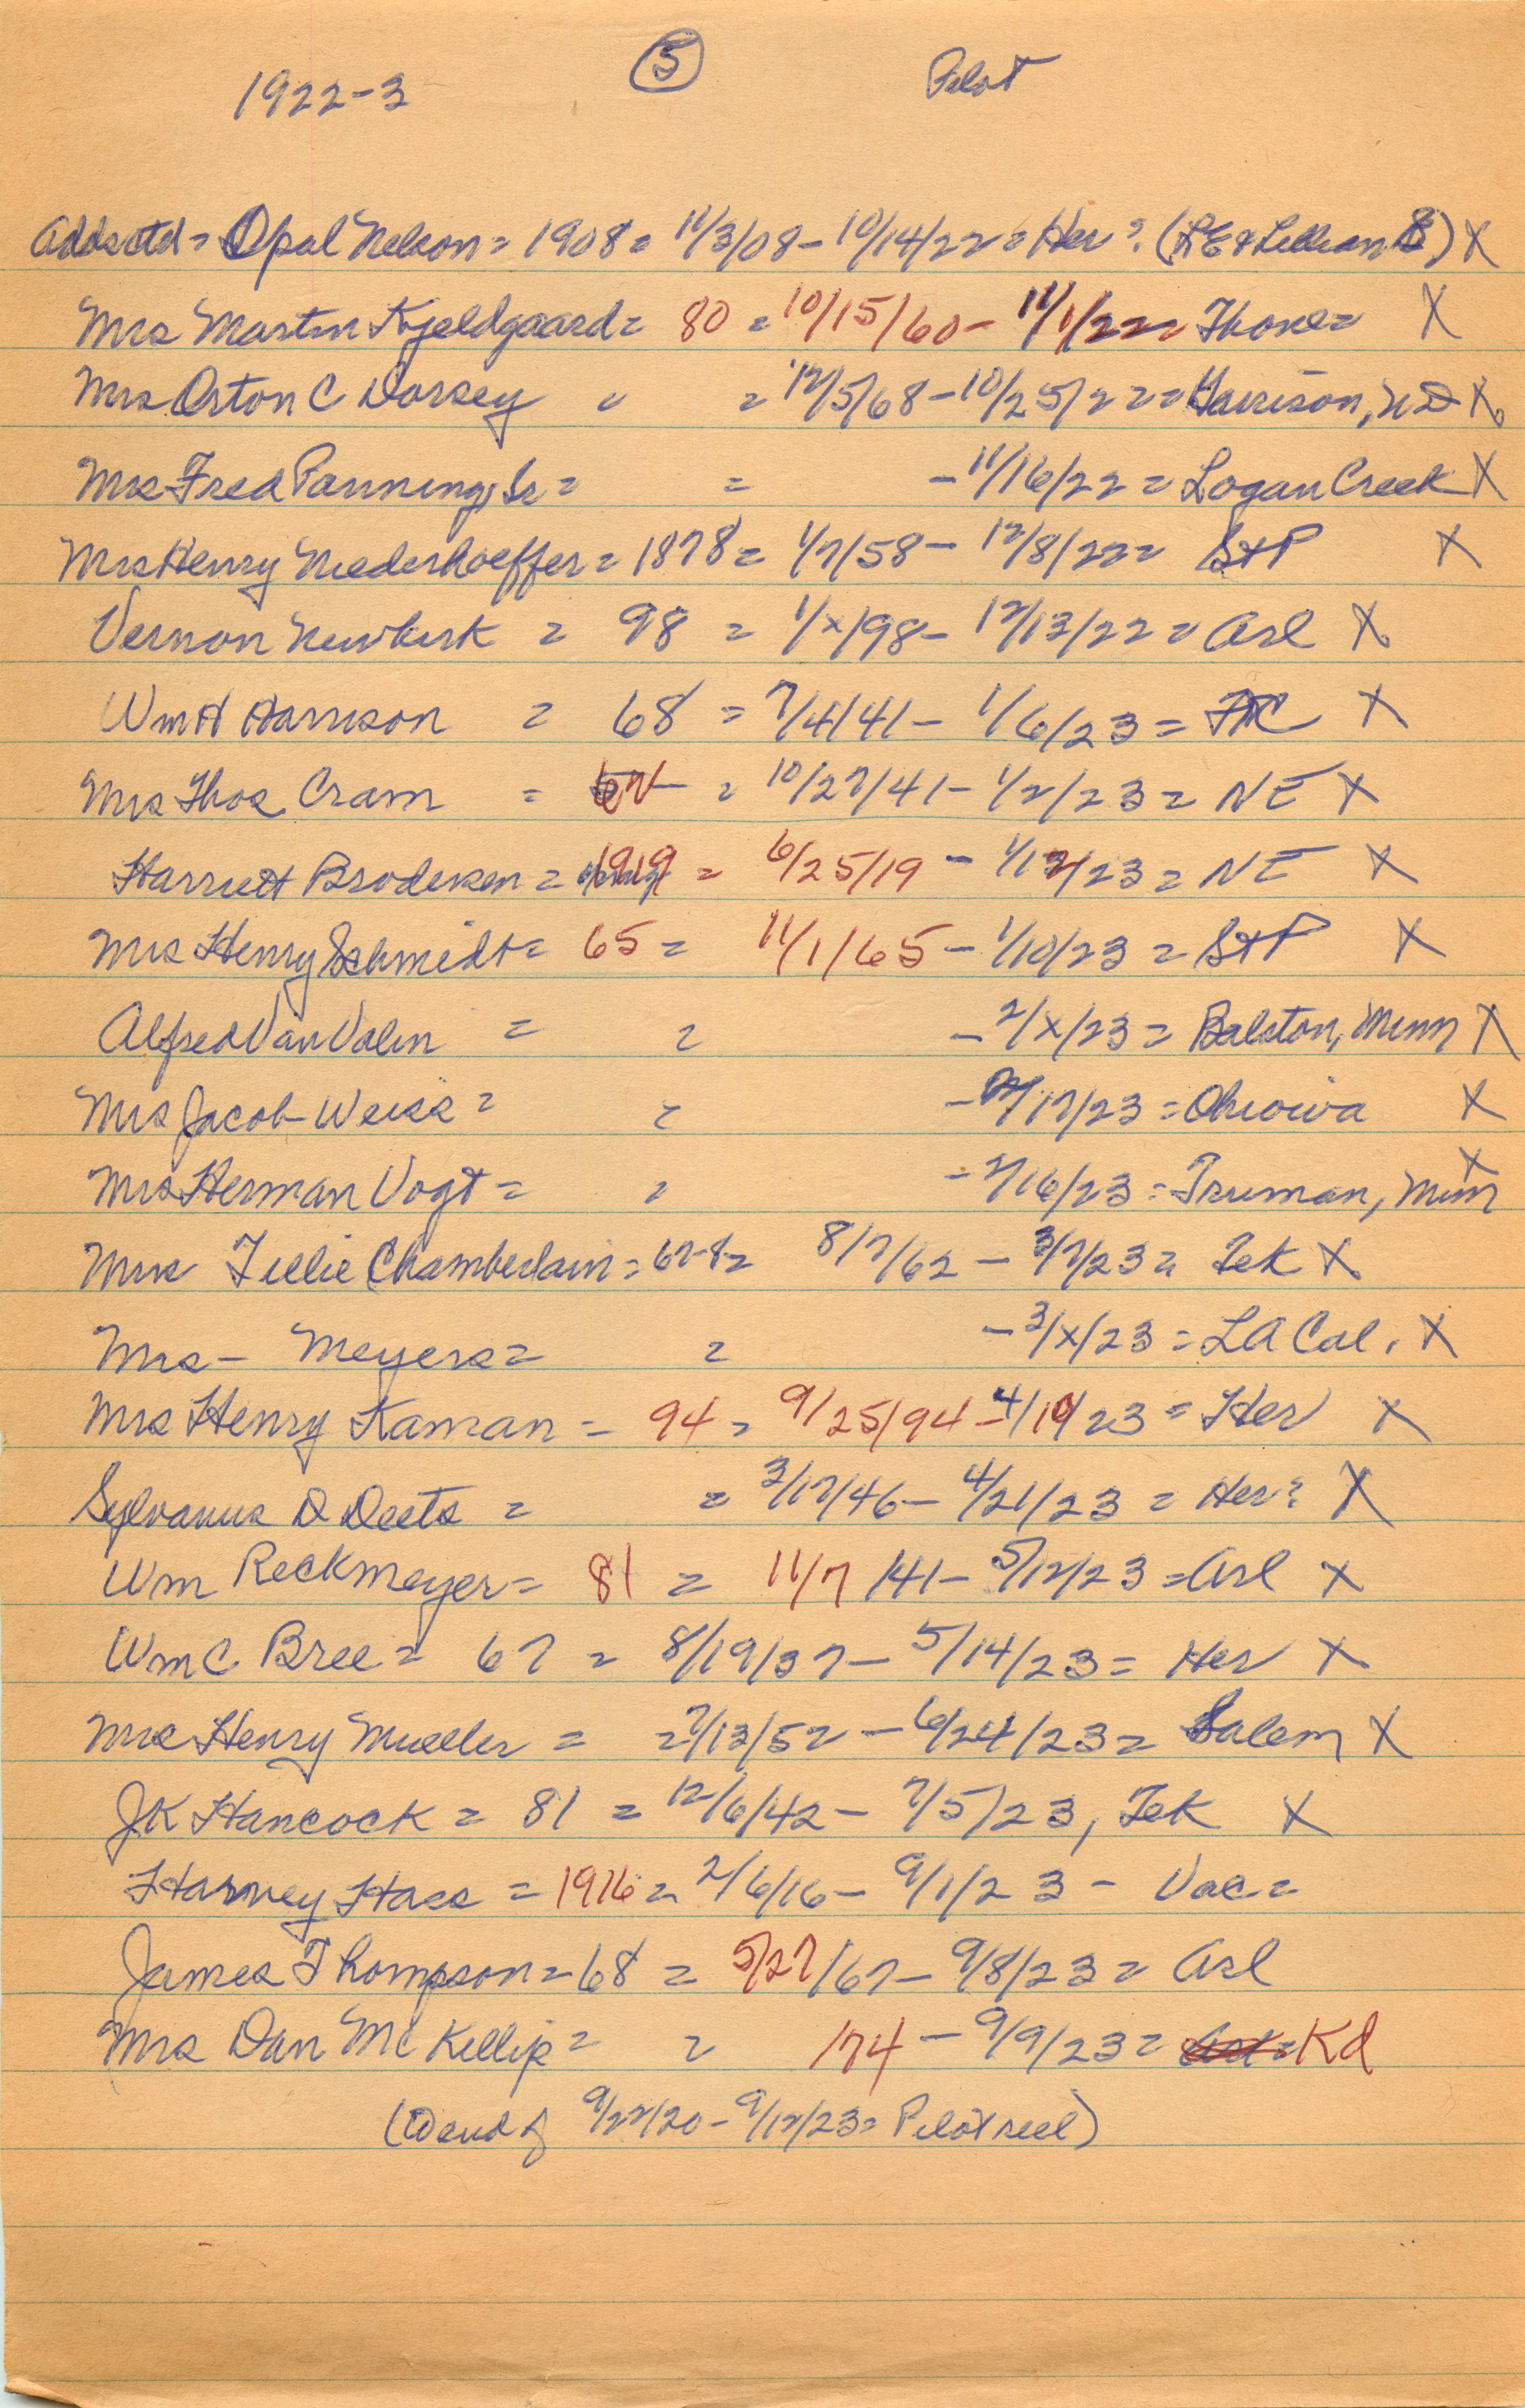 1922-3 (5) Pilot
Opal Nelson = 1908 = 11/3/08 - 10/14/22 = Her? X
Mrs Martin Kjeldgaard = 80 = 10/15/60 - 11/1/22 = X
Mrs Orton C Dorsey = 12/5/68 - 10/25/22 = Garrison, ND X
Mrs Fred Panning, Sr = = - 11/16/22 = Logan Creek X
Mrs Henry Niederhoeffer = 1878 = 1/7/58 - 12/8/22 = St P X
Vernon Newkirk = 98 = 1/x/98 - 12/13/22 = Arl X
Wm H Harrison = 68 = 7/4/41 - 1/6/23 = X
Mrs Thos Cram = = 10/27/41 - 1/2/23 = NE X
Harriett Brodersen = 1919 = 6/25/19 - 1/12/23 = NE X
Mrs Henry Schmidt = 65 = 11/1/65 - 1/10/23 = St P X
Alfred Van Valin = = - 2/x/23 = Balaton, Minn X
Mrs Jacob Weiss = = - 2/12/23 = Ohiowa X
Mrs Herman Vogt = = - 2/16/23 = Truman, Minn X
Mrs Tillie Chamberlain = 67-8 = 8/7/62 - 3/7/23 = Tek X
Mrs - Meyers = = - 3/x/23 = LA Cal. X
Mrs Henry Kaman = 94 = 9/25/94 - 4/10/23 = Her X
Sylvanus D Deets = = 3/17/46 - 4/21/23 = Her? X
Wm Reckmeyer = 81 = 11/7/41 - 5/12/23 = Arl X
Wm C. Bree = 67 = 8/19/37 - 5/14/23 = Her X
Mrs Henry Mueller = = 7/13/52 - 6/24/23 = Salem X
JK Hancock = 81 = 12/6/42 - 7/5/23, Tek X
Harvey Hass = 1916 = 2/6/16 - 9/1/23 - Vac =
James Thompson = 68 = 5/27/67 - 9/8/23 = Arl
Mrs Dan McKillip = = 174 - 9/9/23 = Kd
(end of 9/22/20 - 9/12/23 = Pilot reel)